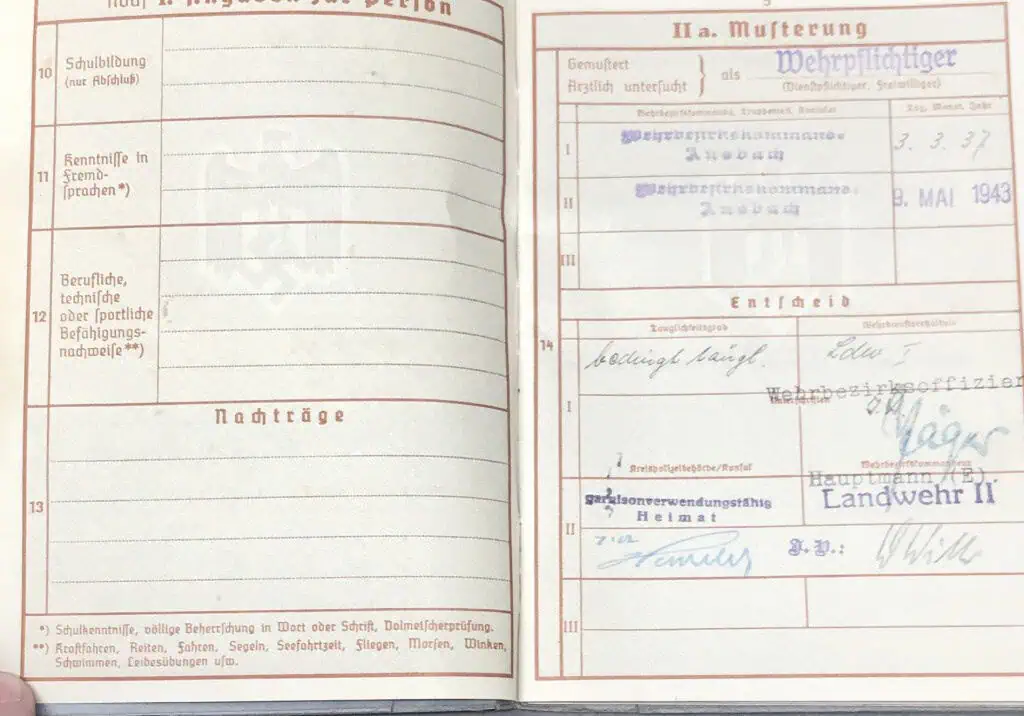 Noch I. Angaben zur Person
10
Schulbildung
(nur Abschluß)
11
Kenntnisse in
Fremd-
sprachen*)
12
Berufliche,
technische
oder sportliche
Befähigungs-
nachweise**)
Nachträge
13
*) Schulkenntnisse, völlige Beherrschung in Wort oder Schrift, Dolmetscherprüfung.
**) Kraftfahren, Reiten, Fahren, Segeln, Seefahrtzeit, Fliegen, Morsen, Winken,
Schwimmen, Leibesübungen usw.
5
IIa. Musterung
Gemustert
Ärztlich untersucht
als
Wehrpflichtiger
(Dienstpflichtiger, Freiwilliger)
Tag, Monat, Jahr
I
Wehrbezirkskommando
Ansbach
3. 3. 37
II
Wehrbezirkskommando
Ansbach
9. MAI 1943
III
Entscheid
14
Tauglichkeitsgrad
Wehrdienstverhältnis
I
bedingt taugl.
Ldw I
Wehrbezirksoffizier
Jäger
Kreispolizeibehörde/Konsul
Wehrbezirkskommandeur
Hauptmann (E).
II
garnisonverwendungsfähig
Heimat
Landwehr II
J. V.:
III